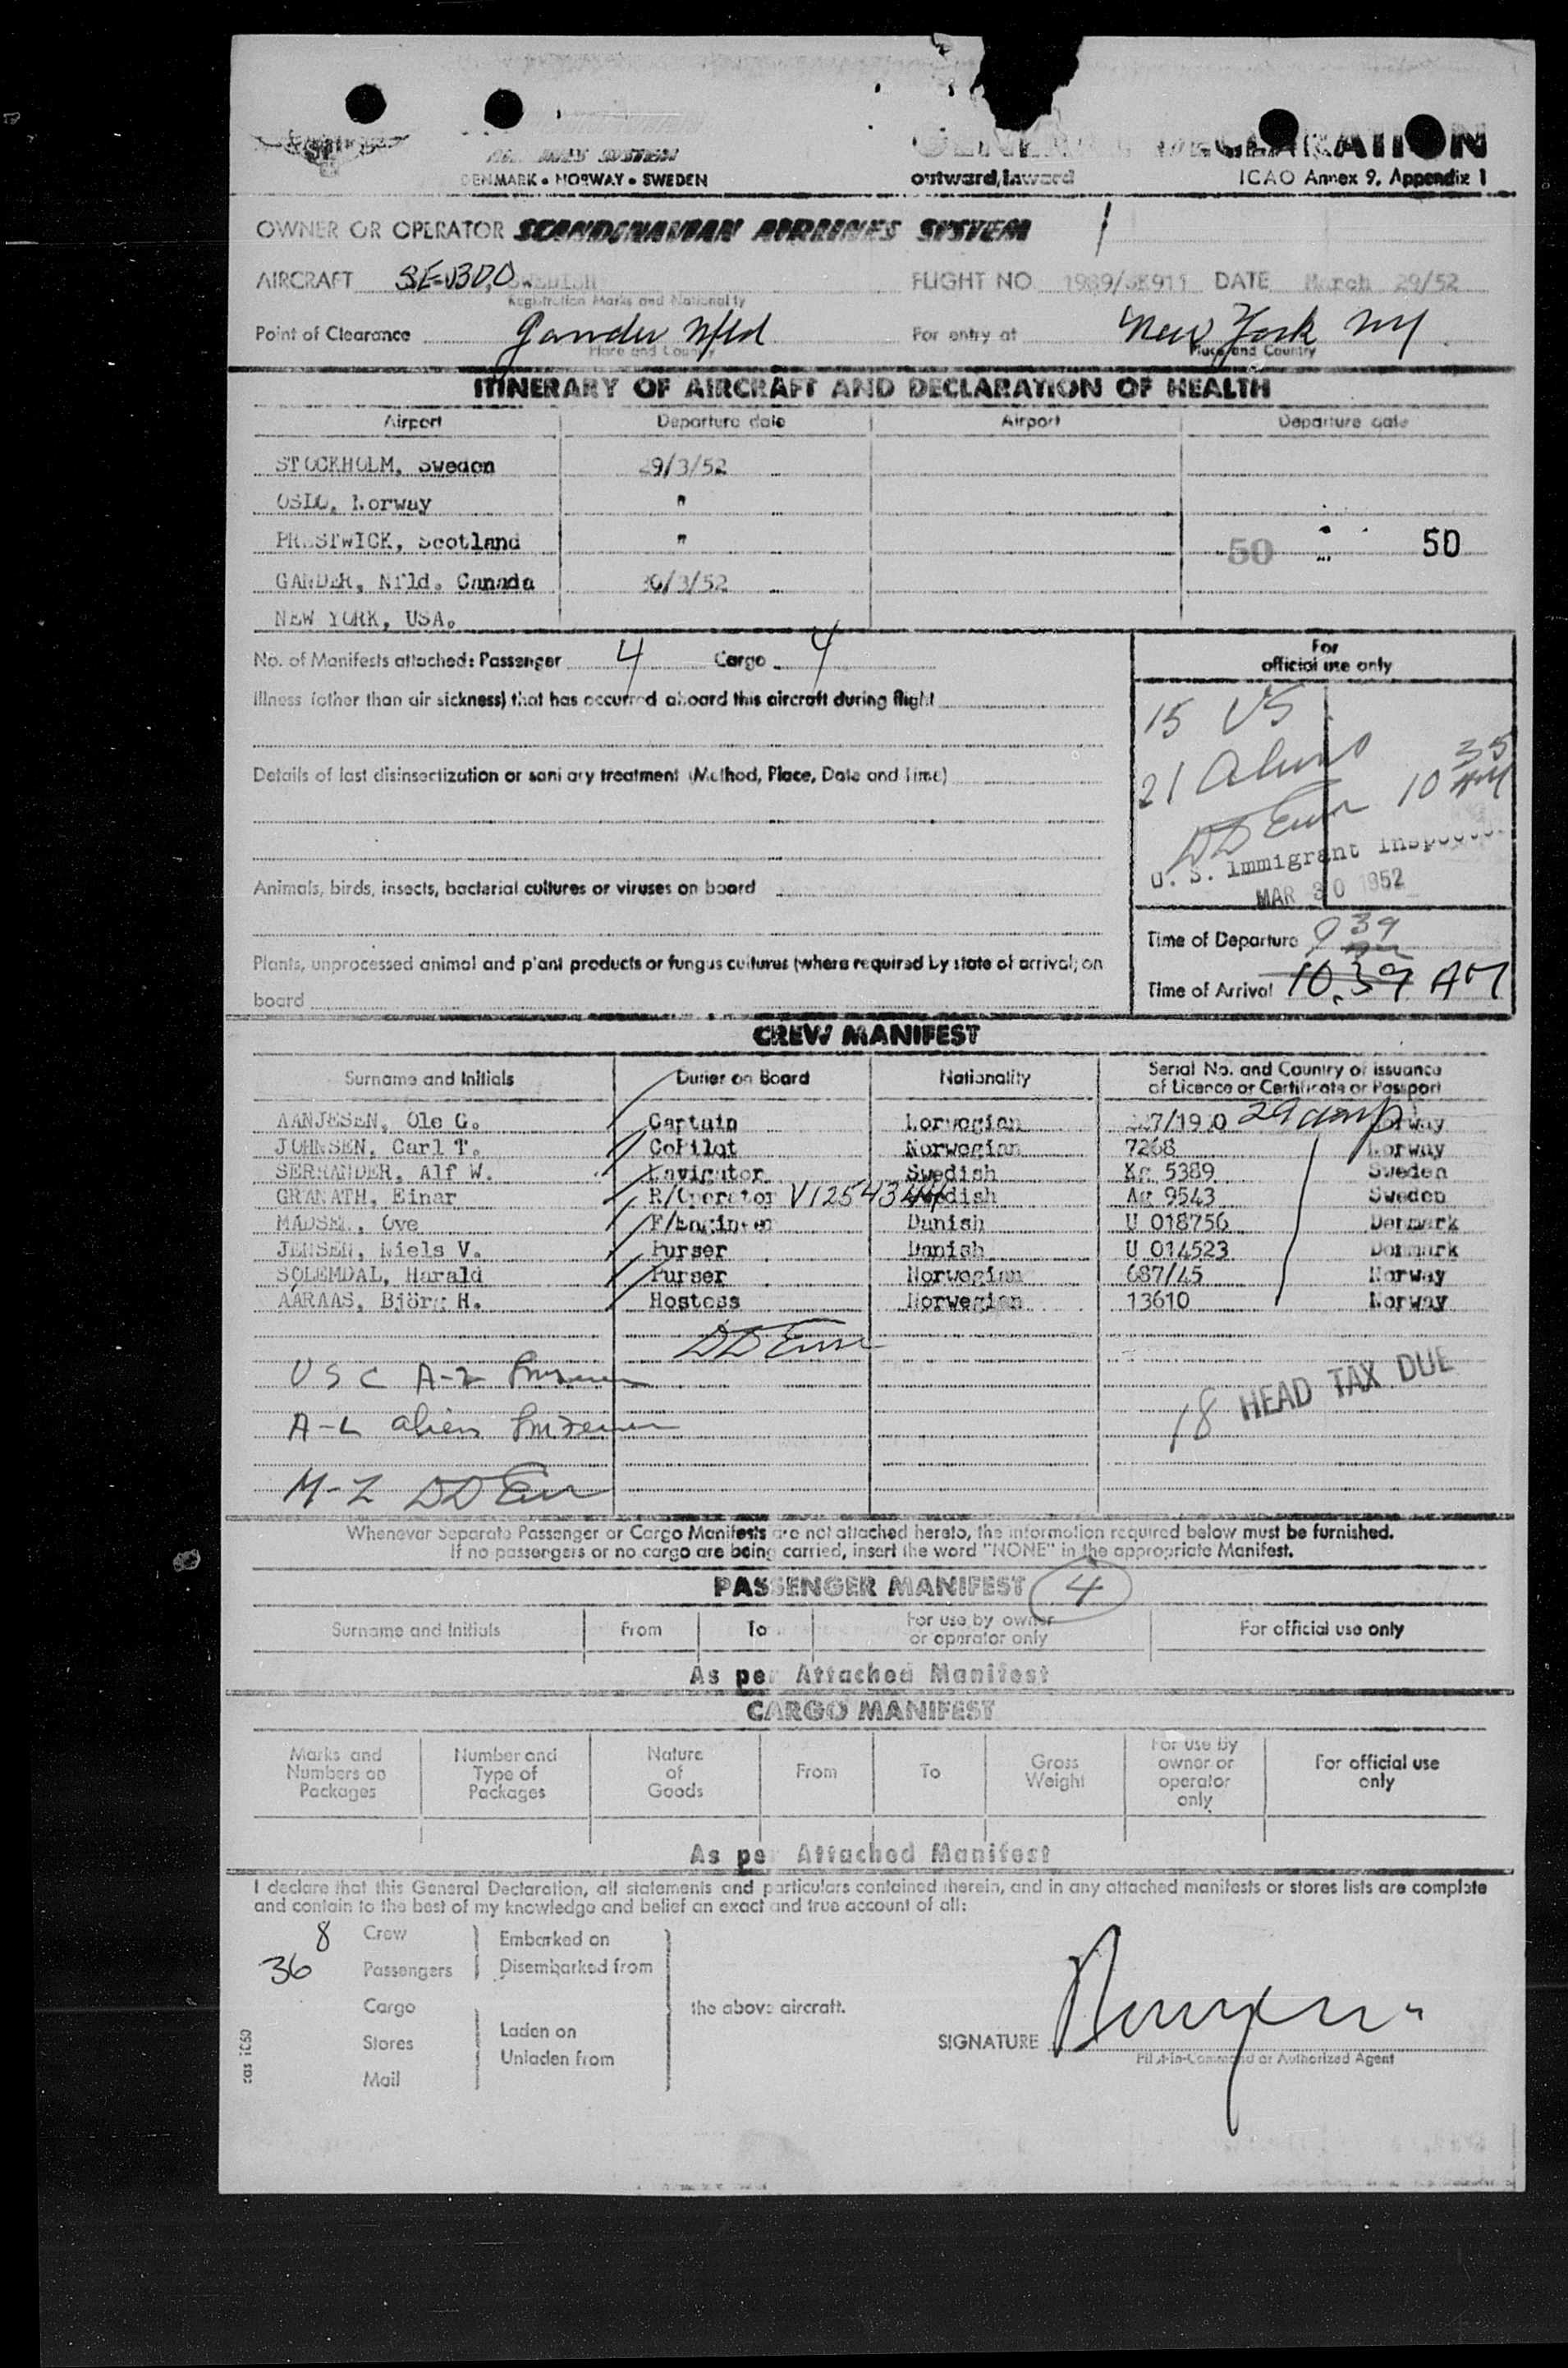 DENMARK • NORWAY • SWEDEN
GENERAL DECLARATION
outward, inward
ICAO Annex 9, Appendix 1
OWNER OR OPERATOR SCANDINAVIAN AIRLINES SYSTEM
AIRCRAFT SE-BDO SWEDISH FLIGHT NO 1989/SK911 DATE March 29/52
Registration Marks and Nationality
Point of Clearance Gander Nfld For entry at New York NY
Place and Country Place and Country
ITINERARY OF AIRCRAFT AND DECLARATION OF HEALTH
Airport Departure date Airport Departure date
STOCKHOLM, Sweden 29/3/52
OSLO, Norway "
PRESTWICK, Scotland " 50 50
GANDER, Nfld. Canada 30/3/52
NEW YORK, USA.
No. of Manifests attached: Passenger 4 Cargo 4
For official use only
Illness (other than air sickness) that has occurred aboard this aircraft during flight
15 US
21 Aliens 10 35 AM
Details of last disinsectization or sanitary treatment (Method, Place, Date and Time)
U. S. Immigrant Inspector
MAR 30 1952
Animals, birds, insects, bacterial cultures or viruses on board
Time of Departure 939
Plants, unprocessed animal and plant products or fungus cultures (where required by state of arrival) on
board
Time of Arrival 10.39 AM
CREW MANIFEST
Surname and Initials Duties on Board Nationality Serial No. and Country of issuance
of Licence or Certificate or Passport
AANJESEN, Ole G. Captain Norwegian 29 days Norway
JOHNSEN, Carl T. CoPilot Norwegian 7268 Norway
SERRANDER, Alf W. Navigator Swedish 5389 Sweden
GRANATH, Einar R/Operator V1254344 Swedish 9543 Sweden
MADSEN, Ove F/Engineer Danish U 018756 Denmark
JENSEN, Niels V. Purser Danish U 014523 Denmark
SOLEMDAL, Harald Purser Norwegian 687/45 Norway
AARAAS, Björg H. Hostess Norwegian 13610 Norway
USC A-Z
18 HEAD TAX DUE
A-L alien
M-Z
Whenever Separate Passenger or Cargo Manifests are not attached hereto, the information required below must be furnished.
If no passengers or no cargo are being carried, insert the word "NONE" in the appropriate Manifest.
PASSENGER MANIFEST 4
Surname and Initials From To For use by owner or operator only For official use only
As per Attached Manifest
CARGO MANIFEST
Marks and Numbers on Packages Number and Type of Packages Nature of Goods From To Gross Weight For use by owner or operator only For official use only
As per Attached Manifest
I declare that this General Declaration, all statements and particulars contained therein, and in any attached manifests or stores lists are complete
and contain to the best of my knowledge and belief an exact and true account of all:
8 Crew Embarked on
36 Passengers Disembarked from
Cargo the above aircraft.
Stores Laden on
Unladen from
Mail
SIGNATURE
Pilot-in-Command or Authorized Agent